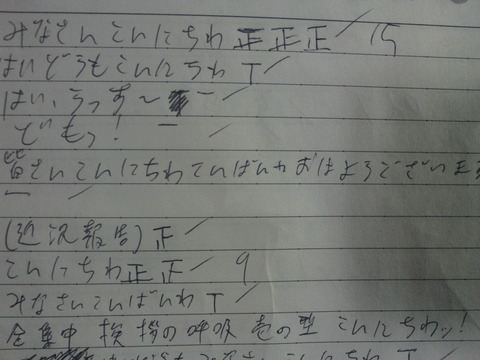 みなさんこんにちわ 正正正 15
はいどうもこんにちわ T
はい、うっす〜 一
でもっ! 一
皆さんこんにちわこんばんわおはようございます
一
(近況報告) 正
こんにちわ正正 9
みなさんこんばんわ T
全集中 挨拶の呼吸 壱の型 こんにちわッ!